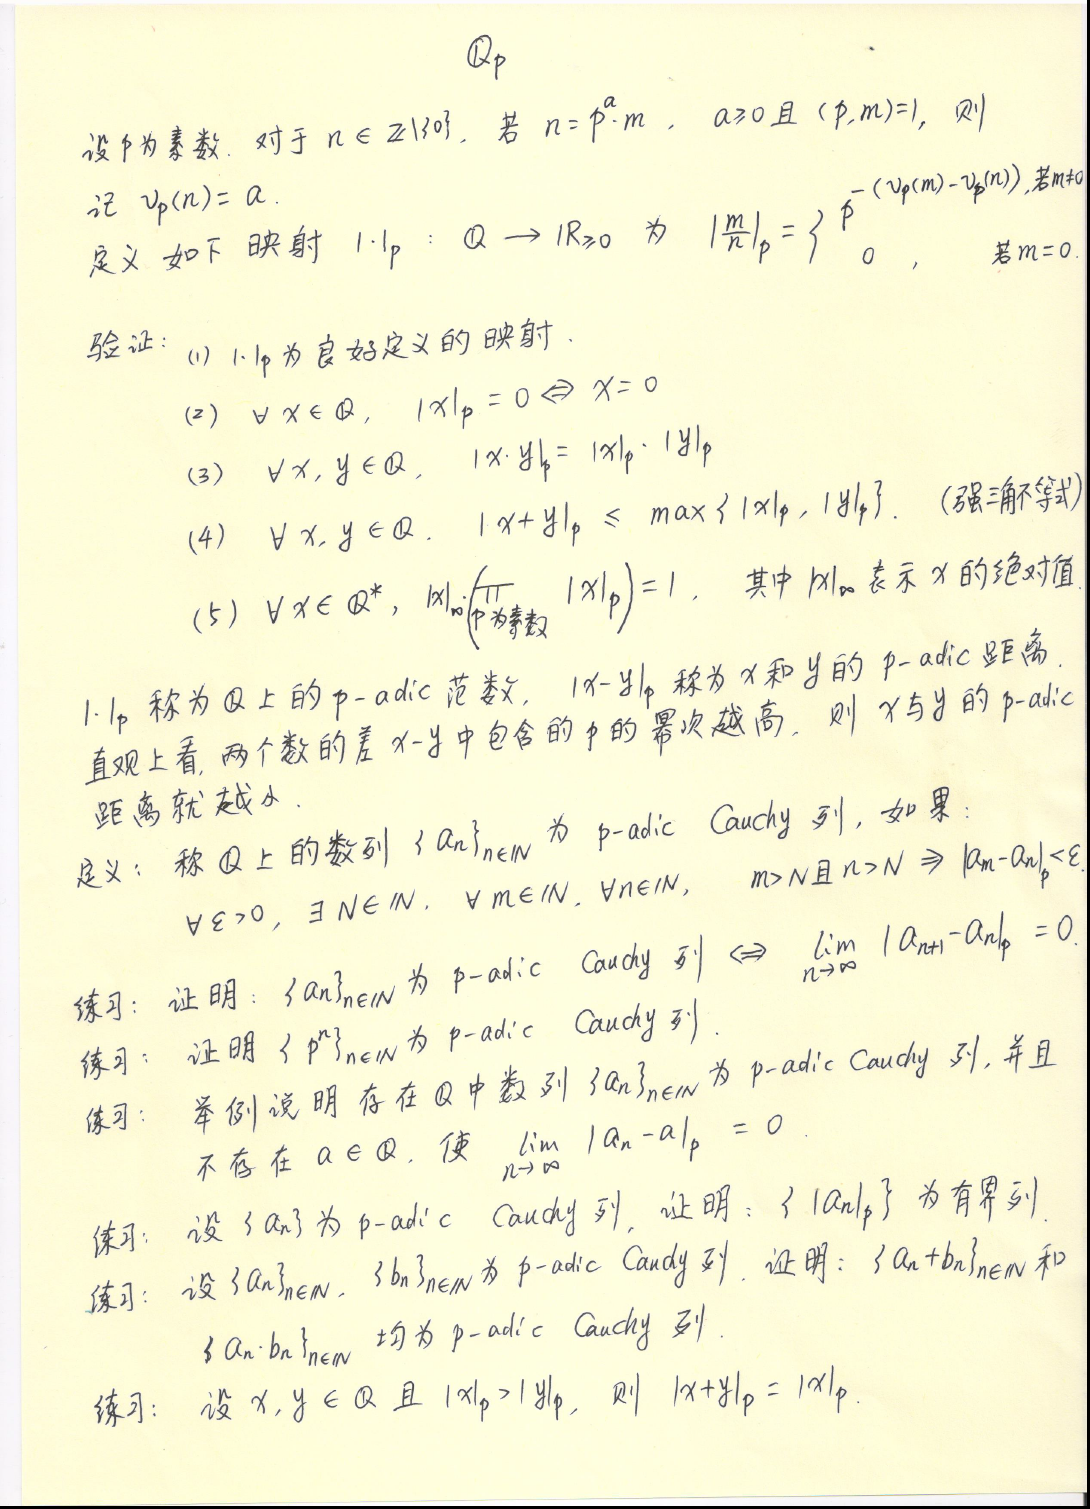 ℚp
设p为素数. 对于 n∈ℤ\{0}, 若 n=p^a·m, a≥0 且 (p,m)=1, 则
记 v_p(n)=a.
定义如下映射 |·|_p : ℚ → ℝ≥0 为 |m/n|_p = { p^{-(v_p(m)-v_p(n))}, 若m≠0
0, 若m=0.
验证: (1) |·|_p 为良好定义的映射.
(2) ∀x∈ℚ, |x|_p=0 ⇔ x=0
(3) ∀x,y∈ℚ, |x·y|_p=|x|_p·|y|_p
(4) ∀x,y∈ℚ. |x+y|_p ≤ max{|x|_p, |y|_p}. (强三角不等式)
(5) ∀x∈ℚ*, |x|_∞·(∏_{p为素数} |x|_p)=1, 其中|x|_∞表示x的绝对值.
|·|_p 称为ℚ上的p-adic范数, |x-y|_p 称为x和y的p-adic距离.
直观上看, 两个数的差x-y中包含的p的幂次越高, 则x与y的p-adic
距离就越小.
定义: 称ℚ上的数列{a_n}_{n∈ℕ}为 p-adic Cauchy 列, 如果:
∀ε>0, ∃N∈ℕ, ∀m∈ℕ, ∀n∈ℕ, m>N且n>N ⇒ |a_m-a_n|_p<ε.
练习: 证明: {a_n}_{n∈ℕ}为 p-adic Cauchy 列 ⇔ lim_{n→∞} |a_{n+1}-a_n|_p=0.
练习: 证明{p^n}_{n∈ℕ}为 p-adic Cauchy 列.
练习: 举例说明存在ℚ中数列{a_n}_{n∈ℕ}为 p-adic Cauchy 列, 并且
不存在 a∈ℚ, 使 lim_{n→∞} |a_n-a|_p=0.
练习: 设{a_n}为 p-adic Cauchy 列, 证明: {|a_n|_p}为有界列.
练习: 设{a_n}_{n∈ℕ}, {b_n}_{n∈ℕ}为 p-adic Caudy 列. 证明: {a_n+b_n}_{n∈ℕ}和
{a_n·b_n}_{n∈ℕ} 均为 p-adic Cauchy 列.
练习: 设x,y∈ℚ且|x|_p>|y|_p, 则 |x+y|_p=|x|_p.